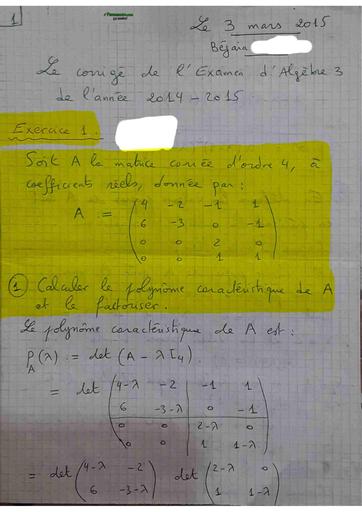 1
Le 3 mars 2015
Béjaia
Le corrigé de l'Examen d'Algèbre 3
de l'année 2014-2015.
Exercice 1.
Soit A la matrice carrée d'ordre 4, à
coefficients réels, donnée par :
A := ( 4 -2 -1 1
6 -3 0 -1
0 0 2 0
0 0 1 1 )
① Calculer le polynôme caractéristique de A
et le factoriser.
Le polynôme caractéristique de A est :
P_A(λ) := det (A - λ I₄)
= det ( 4-λ -2 -1 1
6 -3-λ 0 -1
0 0 2-λ 0
0 0 1 1-λ )
= det ( 4-λ -2 det ( 2-λ 0
6 -3-λ ) 1 1-λ )